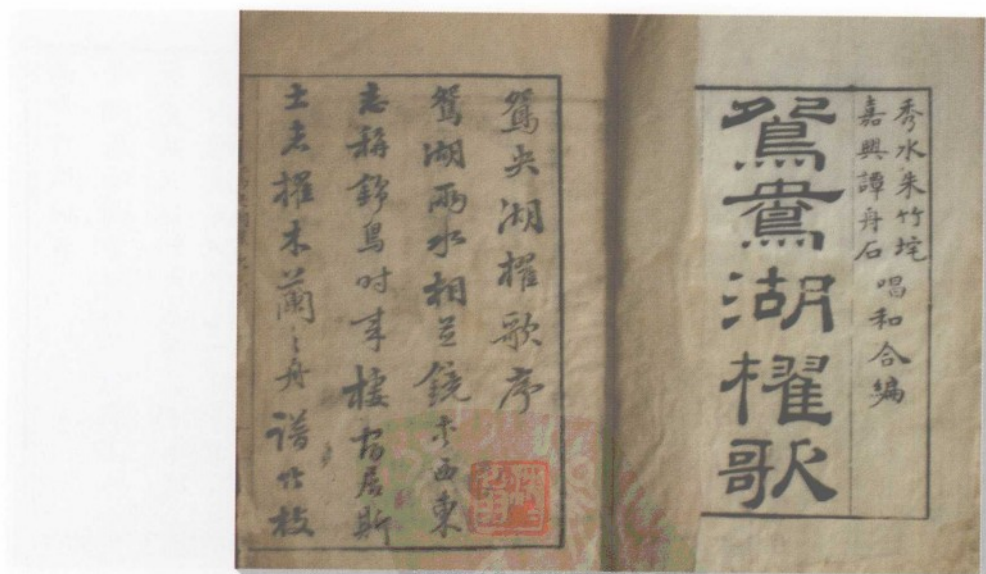 秀水朱竹垞
嘉興譚舟石
唱和合編
鴛鴦湖櫂歌
鴛央湖櫂歌序
鴛湖兩水相並鏡西東
志稱鳥时来棲宿居斯
土者櫂木蘭之舟譜竹枝